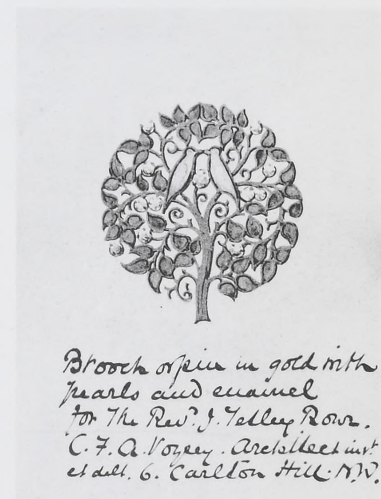 Brooch or pin in gold with
pearls and enamel
for The Revd. J. Tetley Rowe.
C. F. A. Voysey. Architect invt.
et delt. 6. Carlton Hill. N.W.